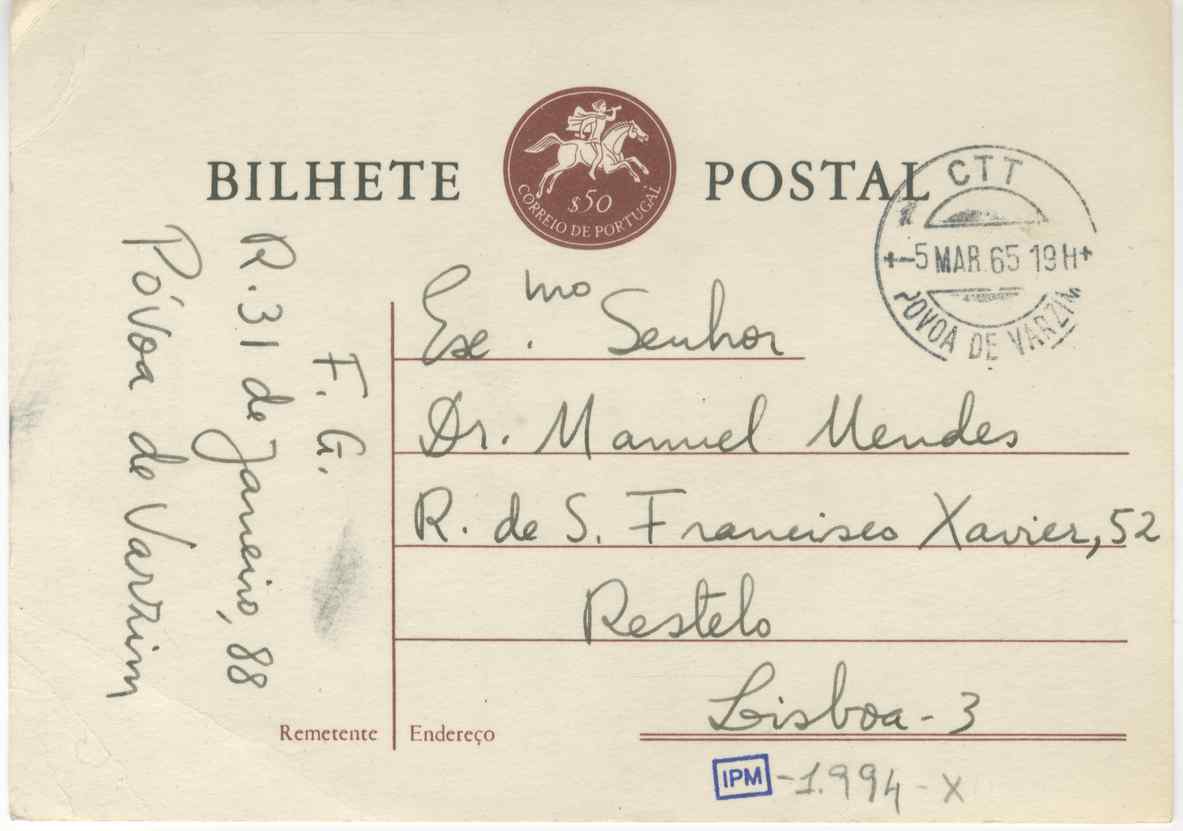 BILHETE POSTAL
$50
CORREIO DE PORTUGAL
CTT
5 MAR. 65 19H
POVOA DE VARZIM
F. G.
R. 31 de Janeiro, 88
Póvoa de Varzim
Exc.mo Senhor
Dr. Manuel Mendes
R. de S. Francisco Xavier, 52
Restelo
Lisboa - 3
Remetente
Endereço
IPM - 1.994 - X